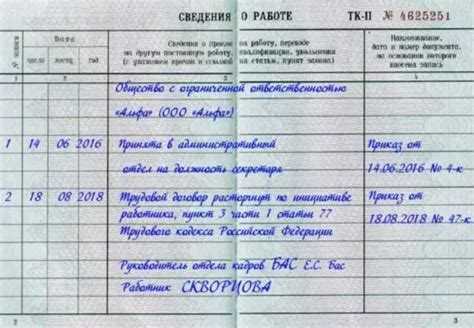 СВЕДЕНИЯ О РАБОТЕ
ТК-II № 4625251
№ записи
Дата
Сведения о приеме на работу, переводе
на другую постоянную работу, квалификации, увольнении
(с указанием причин и ссылкой на статью, пункт закона)
Наименование,
дата и номер документа,
на основании которого
внесена запись
число месяц год
1 2 3 4
Общество с ограниченной ответственностью
«Альфа» (ООО «Альфа»)
1 14 06 2016 Принята в административный Приказ от
отдел на должность секретаря 14.06.2016 № 4-к
2 18 08 2018 Трудовой договор расторгнут по инициативе Приказ от
работника, пункт 3 части 1 статьи 77 18.08.2018 № 47-к
Трудового кодекса Российской Федерации
Руководитель отдела кадров БАС Е.С. Бас
Работник СКВОРЦОВА
2 3